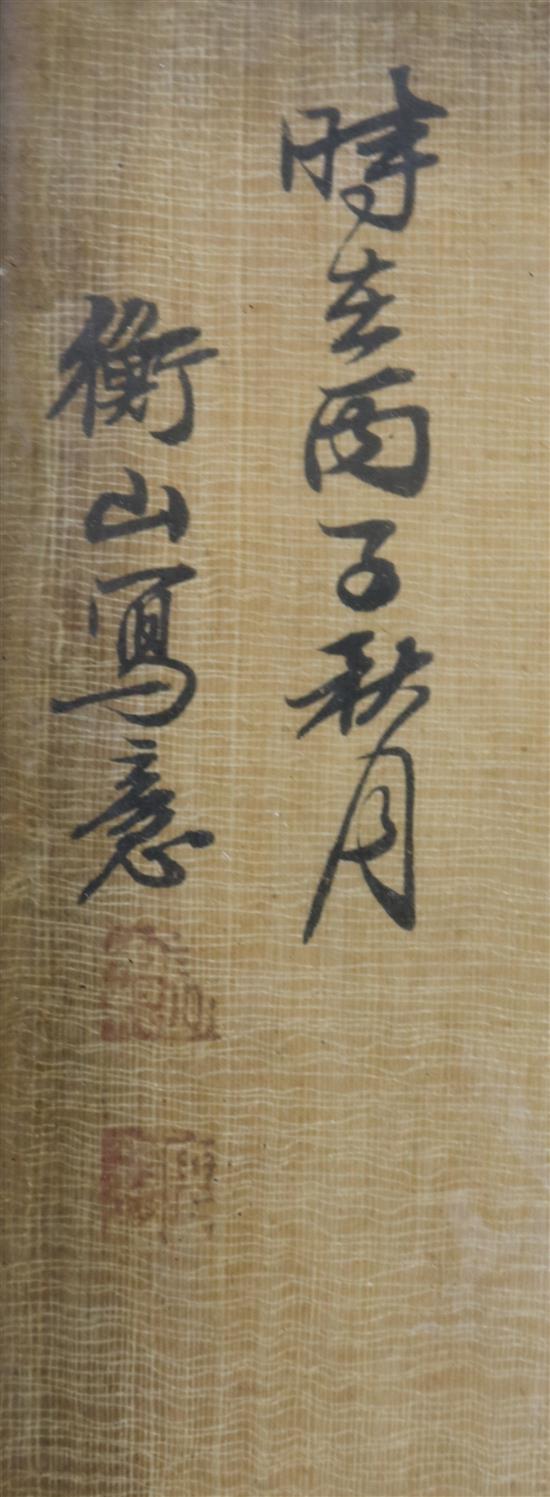 時在丙子秋月
衡山寫意